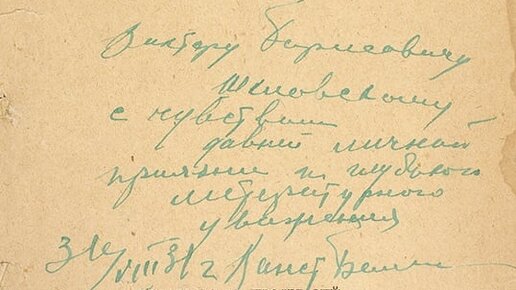 Виктору Борисовичу
Шкловскому
с чувством
давней личной
приязни и глубокого
литературного
уважения
VIII 31 г